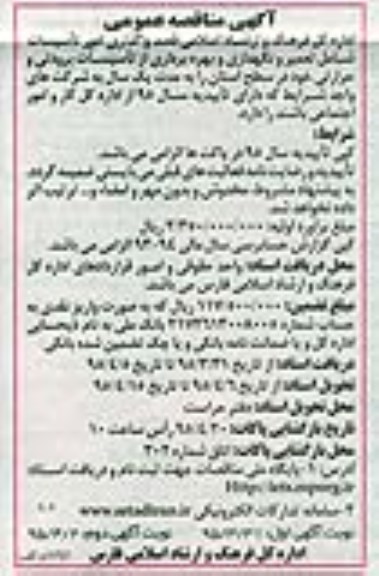 آگهی مناقصه عمومی
اداره کل فرهنگ و ارشاد اسلامی قصد واگذاری امور تأسیسات
شامل تعمیر و نگهداری و بهره برداری از تأسیسات برودتی و
حرارتی خود در سطح استان را به مدت یک سال به شرکت های
واجد شرایط که دارای تأییدیه سال ۹۵ از اداره کل کار و امور
اجتماعی باشند را دارد.
شرایط:
کپی تأییدیه سال ۹۵ در پاکت ها الزامی می باشد.
تأییدیه و رضایت نامه فعالیت های قبلی می بایستی ضمیمه گردد.
به پیشنهاد مشروط، مخدوش و بدون مهر و امضاء و... ترتیب اثر
داده نخواهد شد.
مبلغ برآورد اولیه: ریال
کپی گزارش حسابرسی سال مالی ۹۴-۹۳ الزامی می باشد.
محل دریافت اسناد: واحد حقوقی و امور قراردادهای اداره کل
فرهنگ و ارشاد اسلامی فارس می باشد.
مبلغ تضمین: ریال که به صورت واریز نقدی به
حساب شماره بانک ملی به نام
اداره کل و یا ضمانت نامه بانکی و یا چک تضمین شده بانکی
دریافت اسناد: از تاریخ تا تاریخ
تحویل اسناد: از تاریخ تا تاریخ
محل تحویل اسناد: دفتر حراست
تاریخ بازگشایی پاکات: رأس ساعت ۱۰
محل بازگشایی پاکات: اتاق شماره ۲۰۲
آدرس: ۱- پایگاه ملی مناقصات جهت ثبت نام و دریافت اسناد
http://iets.mporg.ir
۲- سامانه تدارکات الکترونیکی www.setadiran.ir
نوبت آگهی اول: نوبت آگهی دوم:
اداره کل فرهنگ و ارشاد اسلامی فارس